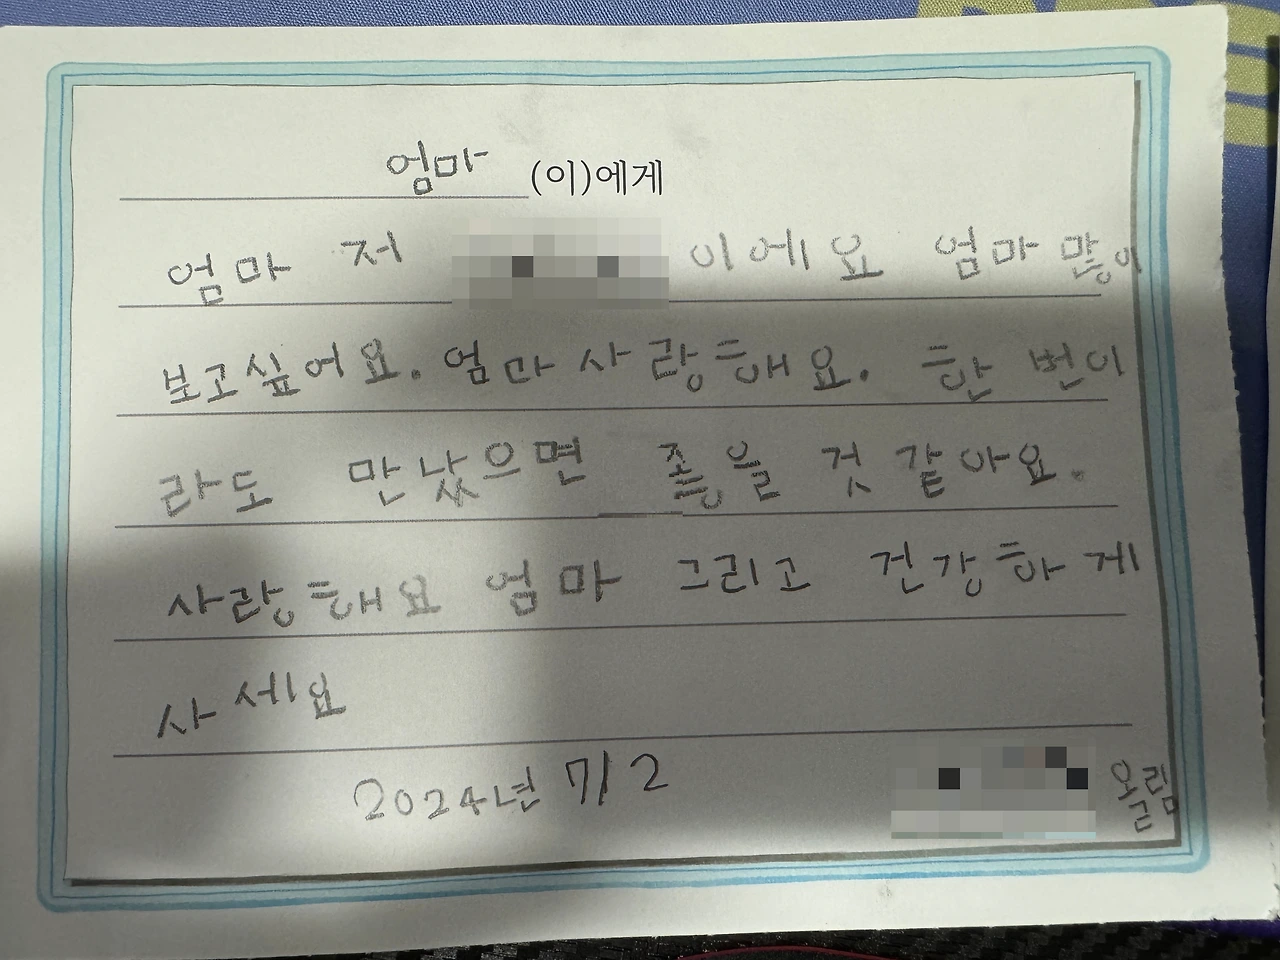 엄마 (이)에게
엄마 저 이에요 엄마 많이
보고싶어요. 엄마 사랑해요. 한 번이
라도 만났으면 좋을 것 같아요.
사랑해요 엄마 그리고 건강하게
사세요
2024년 7/2 올림